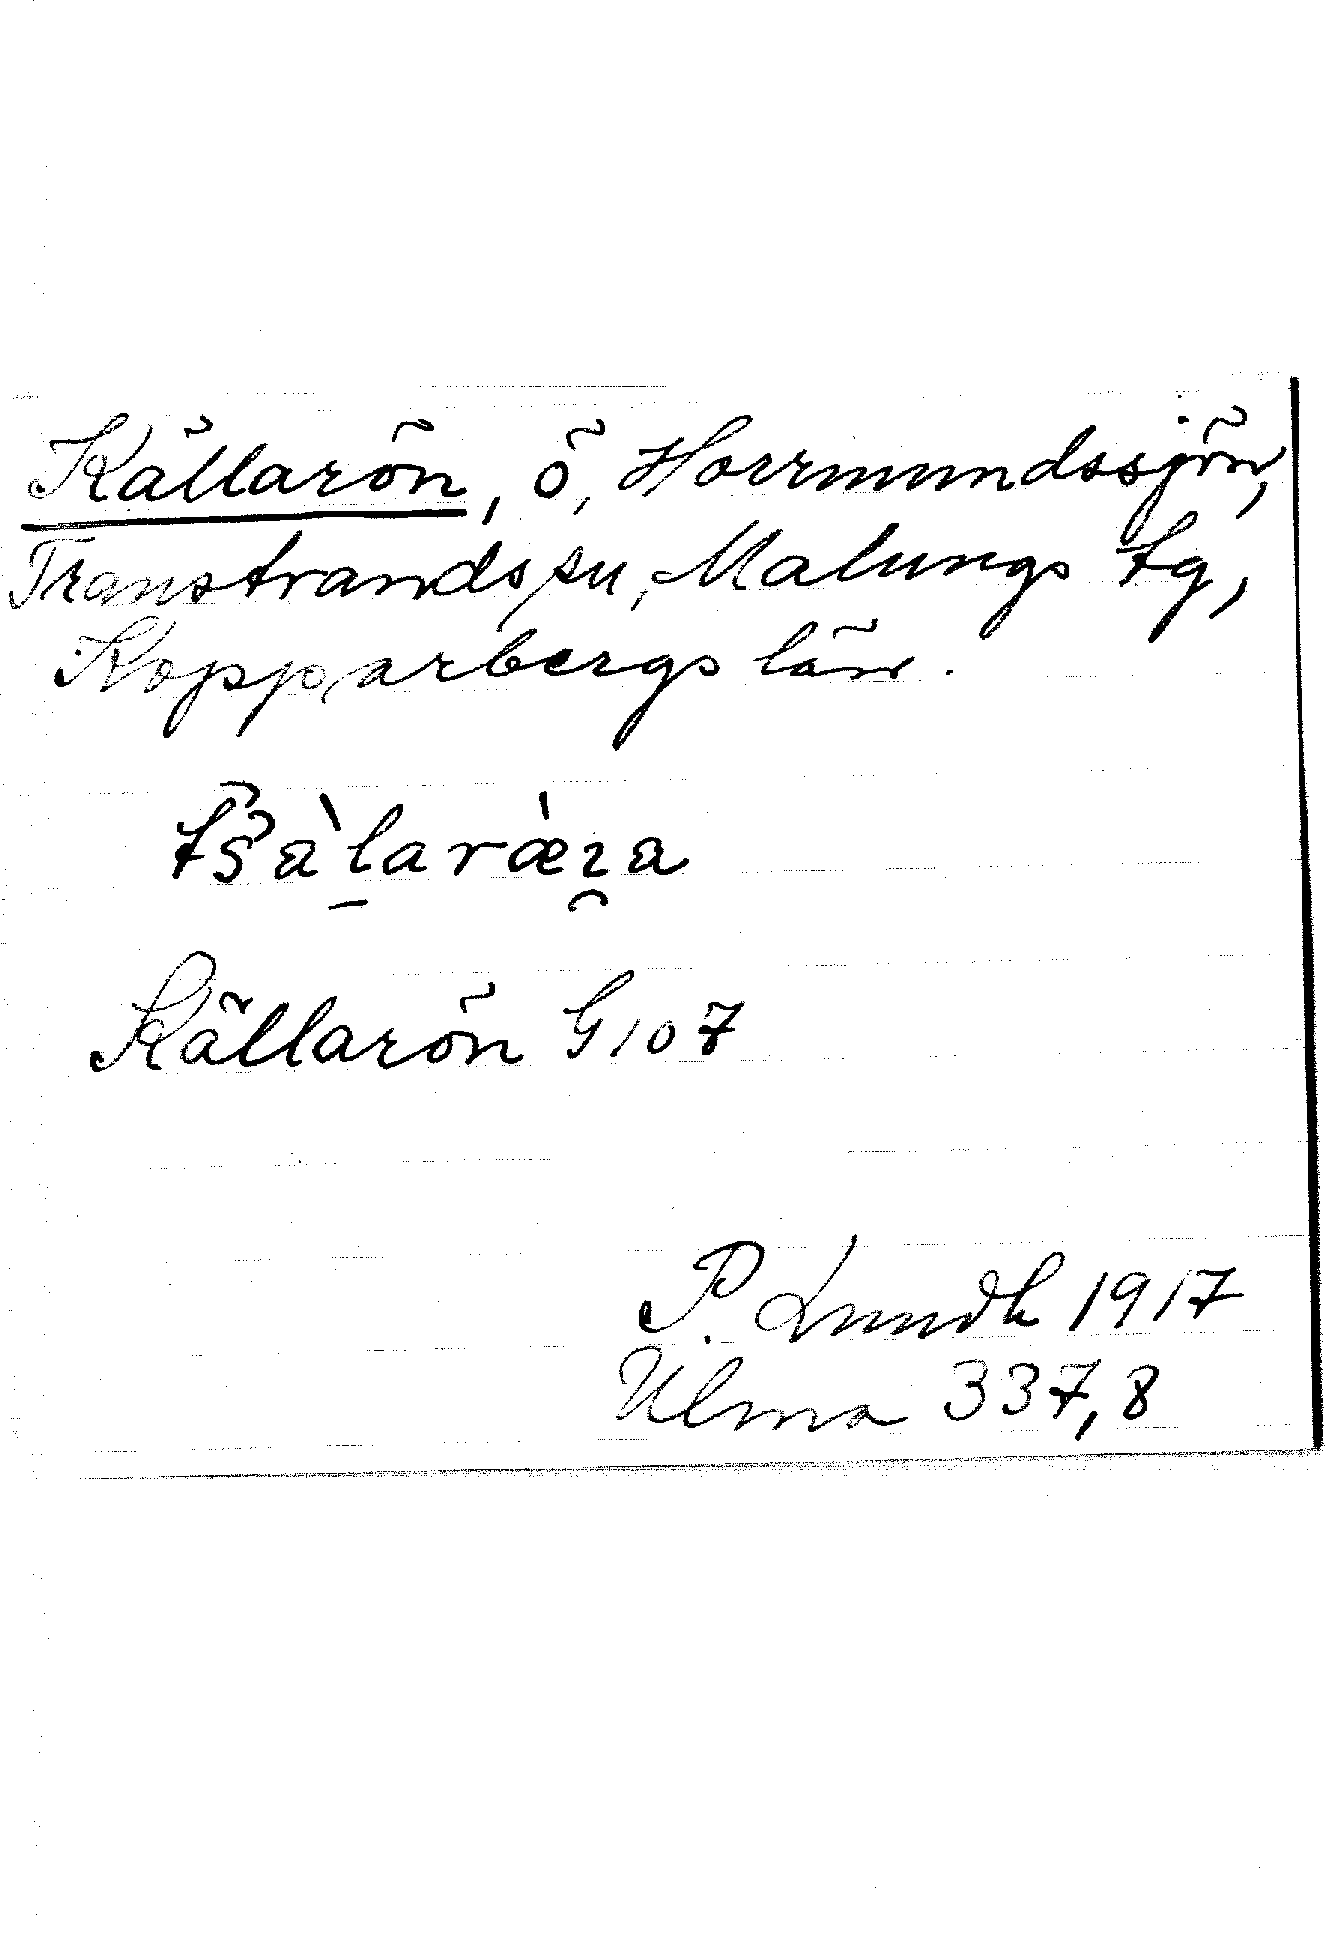 Källarön, ö, Horrmundssjön,
Transtrands sn, Malungs tg,
Kopparbergs län.
Källarön G 107
P. Lundh 1917
Ulma 337,8